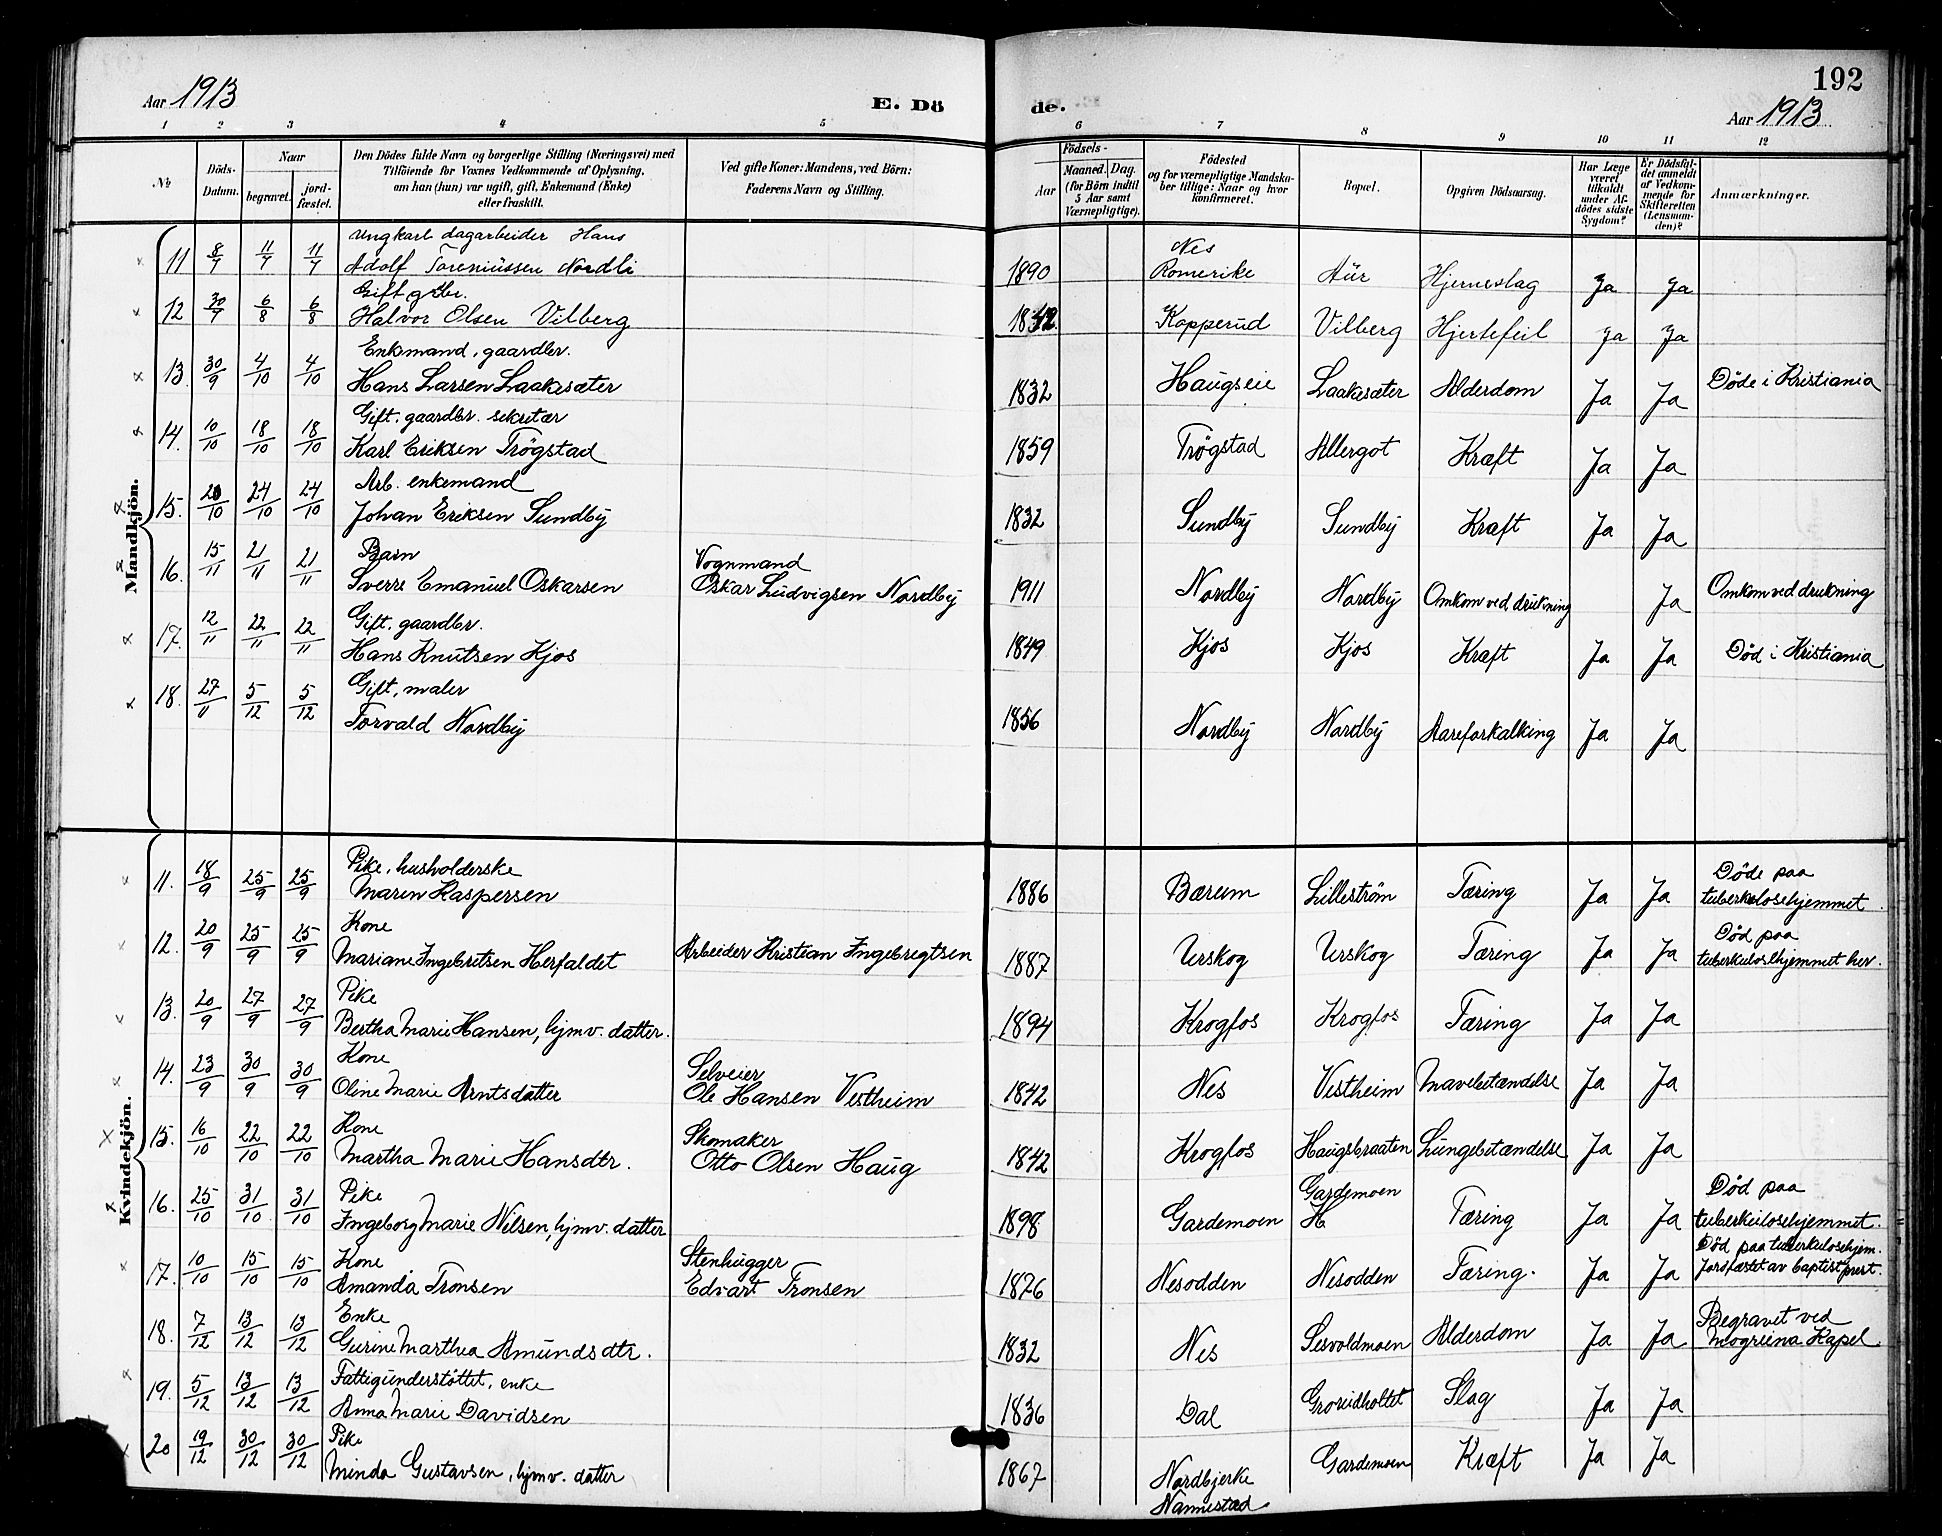 192
Aar 1913
E. Dö
de.
Aar 1913
1 2 3 4 5 6 7 8 9 10 11 12
No
Döds-Datum.
Naar
begravet.
jord-fæstet.
Den Dödes fulde Navn og borgerlige Stilling (Næringsvei) med
Tilföiende for Voxnes Vedkommende af Oplysning,
om han (hun) var ugift, gift, Enkemand (Enke)
eller fraskilt.
Ved gifte Koner: Mandens, ved Börn:
Faderens Navn og Stilling.
Födsels-
Aar
Maaned. Dag.
(for Börn indtil
5 Aar samt
Værnepligtige).
Födested
og for værnepligtige Mandska-
ber tillige: Naar og hvor
konfirmeret.
Bopæl.
Opgiven Dödsaarsag.
Har Læge
været
tilkaldt
under Af-
dödes sidste
Sygdom?
Er Dödsfal-
det anmeldt
af Vedkom-
mende for
Skifteretten
(Lensman-
den)?
Anmærkninger.
Mandkjön.
11 8/7 11/7 11/7 Ungkarl dagarbeider Hans
Adolf Toreniussen Nordli 1890 Nes
Romerike Aur Hjerneslag Ja Ja
12 30/7 6/8 6/8 Gift gdbr.
Halvor Olsen Vilberg 1842 Kopperud Vilberg Hjertefeil Ja Ja
13. 30/9 4/10 4/10 Enkemand, gaardbr.
Hans Larsen Laakesæter 1832 Haugseie Laakesæter Alderdom Ja Ja Døde i Kristiania
14. 10/10 18/10 18/10 Gift. gaardbr. sekretær
Karl Eriksen Trøgstad 1859 Trøgstad Allergot Kræft Ja Ja
15. 20/10 24/10 24/10 Arb. enkemand
Johan Eriksen Sundby 1832 Sundby Sundby Kræft Ja Ja
16. 15/11 21/11 21/11 Barn
Sverre Emanuel Oskarsen Vognmand
Oskar Ludvigsen Nordby 1911 Nordby Nordby Omkom ved drukning Ja Omkom ved drukning
17. 12/11 22/11 22/11 Gift. gaardbr.
Hans Knutsen Kjos 1849 Kjos Kjos Kræft Ja Ja Død i Kristiania
18. 27/11 5/12 5/12 Gift, maler
Torvald Nordby 1856 Nordby Nordby Aareforkalking Ja Ja
Kvindekjön.
11. 18/9 25/9 25/9 Pike, husholderske
Maren Kaspersen 1886 Bærum Lillestrøm Tæring Ja Ja Døde paa
tuberkulosehjemmet.
12. 20/9 25/9 25/9 Kone
Mariane Ingebretsen Herfaldet Arbeider Kristian Ingebregtsen 1887 Urskog Urskog Tæring Ja Ja Død paa
tuberkulosehjemmet her.
13. 20/9 27/9 27/9 Pike
Bertha Marie Hansen, hjmv. datter. 1894 Krogfos Krogfos Tæring Ja Ja
14. 23/9 30/9 30/9 Kone
Oline Marie Arntsdatter Selveier
Ole Hansen Vestheim 1842 Nes Vestheim Mavebetændelse Ja Ja
15. 16/10 22/10 22/10 Kone
Martha Marie Hansdtr. Skomaker
Otto Olsen Haug 1842 Krogfos Haugsbraaten Lungebetændelse Ja Ja
16. 25/10 31/10 31/10 Pike
Ingeborg Marie Nilsen, hjmv. datter 1898 Gardemoen Gardemoen
H Tæring Ja Ja Død paa
tuberkulosehjemmet.
17. 10/10 15/10 15/10 Kone
Amanda Tronsen Stenhugger
Edvart Tronsen 1876 Nesodden Nesodden Tæring. Ja Ja Død paa tuberkulosehjem.
Jordfæstet av baptistprest.
18. 7/12 13/12 13/12 Enke
Gurine Marthea Amundsdtr. 1832 Nes Sesvoldmoen Alderdom Ja Ja Begravet ved
Mogreina Kapel
19. 5/12 13/12 13/12 Fattigunderstøttet, enke
Anna Marie Davidsen 1836 Dal Slag Ja Ja
20 19/12 30/12 30/12 Pike
Minda Gustavsen, hjmv. datter 1867 Nordbjerke
Nannestad Gardemoen Kræft Ja Ja